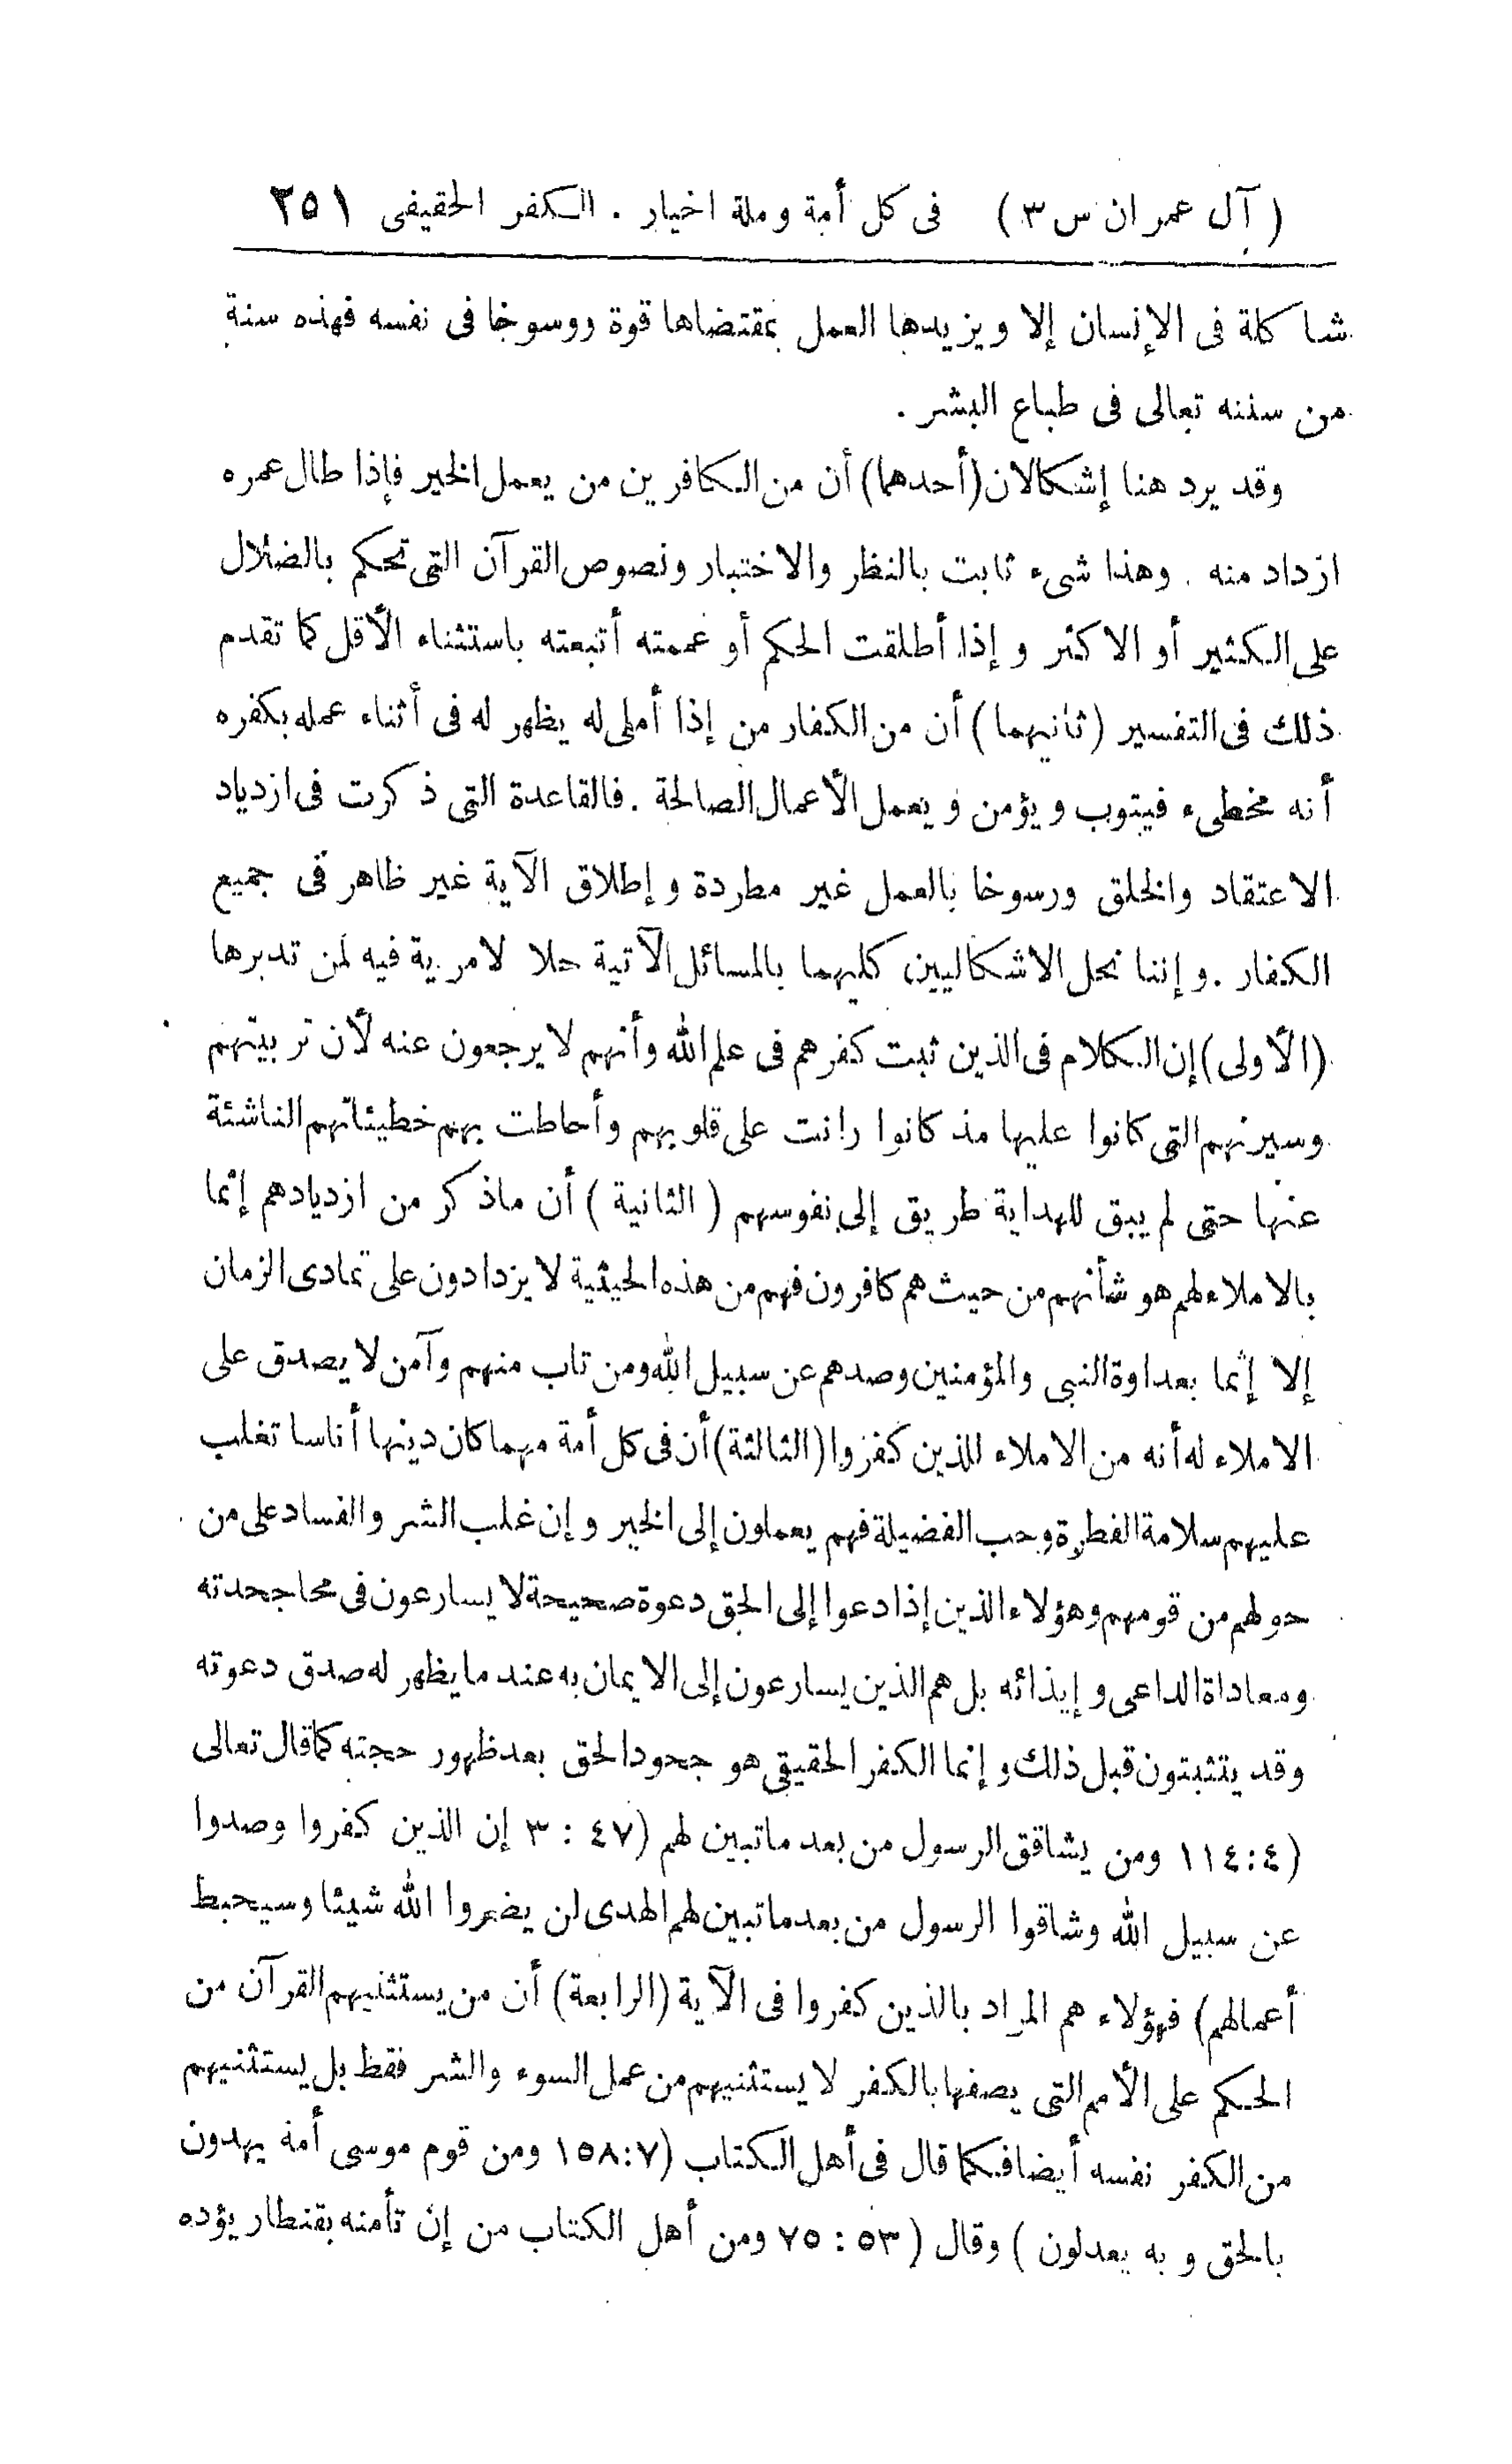 ( آل عمران س ٣ ) فى كل أمة وملة اخيار . الكفر الحقيقى ٢٥١
شاكلة فى الإنسان إلا ويزيدها العمل بمقتضاها قوة ورسوخا فى نفسه فهذه سنة
من سننه تعالى فى طباع البشر .
وقد يرد هنا إشكالان (أحدهما) أن من الكافرين من يعمل الخير فإذا طال عمره
ازداد منه . وهذا شىء ثابت بالنظر والاختبار ونصوص القرآن التى تحكم بالضلال
على الكثير أو الاكثر وإذا أطلقت الحكم أو عممته أتبعته باستثناء الأقل كما تقدم
ذلك فى التفسير (ثانيهما) أن من الكفار من إذا أملى له يظهر له فى أثناء عمله بكفره
أنه مخطىء فيتوب ويؤمن ويعمل الأعمال الصالحة . فالقاعدة التى ذكرت فى ازدياد
الاعتقاد والخلق ورسوخا بالعمل غير مطردة وإطلاق الآية غير ظاهر فى جميع
الكفار . وإننا نحل الاشكاليين كليهما بالمسائل الآتية حلا لا مرية فيه لمن تدبرها
(الأولى) إن الكلام فى الذين ثبت كفرهم فى علم الله وأنهم لا يرجعون عنه لأن تربيتهم
وسيرتهم التى كانوا عليها مذ كانوا رانت على قلوبهم وأحاطت بهم خطيئاتهم الناشئة
عنها حتى لم يبق للهداية طريق إلى نفوسهم ( الثانية ) أن ماذكر من ازديادهم إثما
بالاملاء لهم هو شأنهم من حيث هم كافرون فهم من هذه الحيثية لا يزدادون على تمادى الزمان
إلا إثما بعداوة النبى والمؤمنين وصدهم عن سبيل الله ومن تاب منهم وآمن لا يصدق على
الاملاء له أنه من الاملاء للذين كفروا (الثالثة) أن فى كل أمة مهما كان دينها أناسا تغلب
عليهم سلامة الفطرة وحب الفضيلة فهم يعملون إلى الخير وإن غلب الشر والفساد على من
حولهم من قومهم وهؤلاء الذين إذا دعوا إلى الحق دعوة صحيحة لا يسارعون فى محاجحدته
ومعاداة الداعى وإيذائه بل هم الذين يسارعون إلى الايمان به عند ما يظهر له صدق دعوته
وقد يتثبتون قبل ذلك وإنما الكفر الحقيقى هو جحود الحق بعد ظهور حجته كما قال تعالى
(٤:١١٤ ومن يشاقق الرسول من بعد ماتبين لهم (٤٧ : ٣ إن الذين كفروا وصدوا
عن سبيل الله وشاقوا الرسول من بعد ماتبين لهم الهدى لن يضروا الله شيئا وسيحبط
أعمالهم) فهؤلاء هم المراد بالذين كفروا فى الآية (الرابعة) أن من يستثنيهم القرآن من
الحكم على الأمم التى يصفها بالكفر لا يستثنيهم من عمل السوء والشر فقط بل يستثنيهم
من الكفر نفسه أيضا فكما قال فى أهل الكتاب (٧:١٥٨ ومن قوم موسى أمة يهدون
بالحق وبه يعدلون ) وقال ( ٥٣ : ٧٥ ومن أهل الكتاب من إن تأمنه بقنطار يؤده